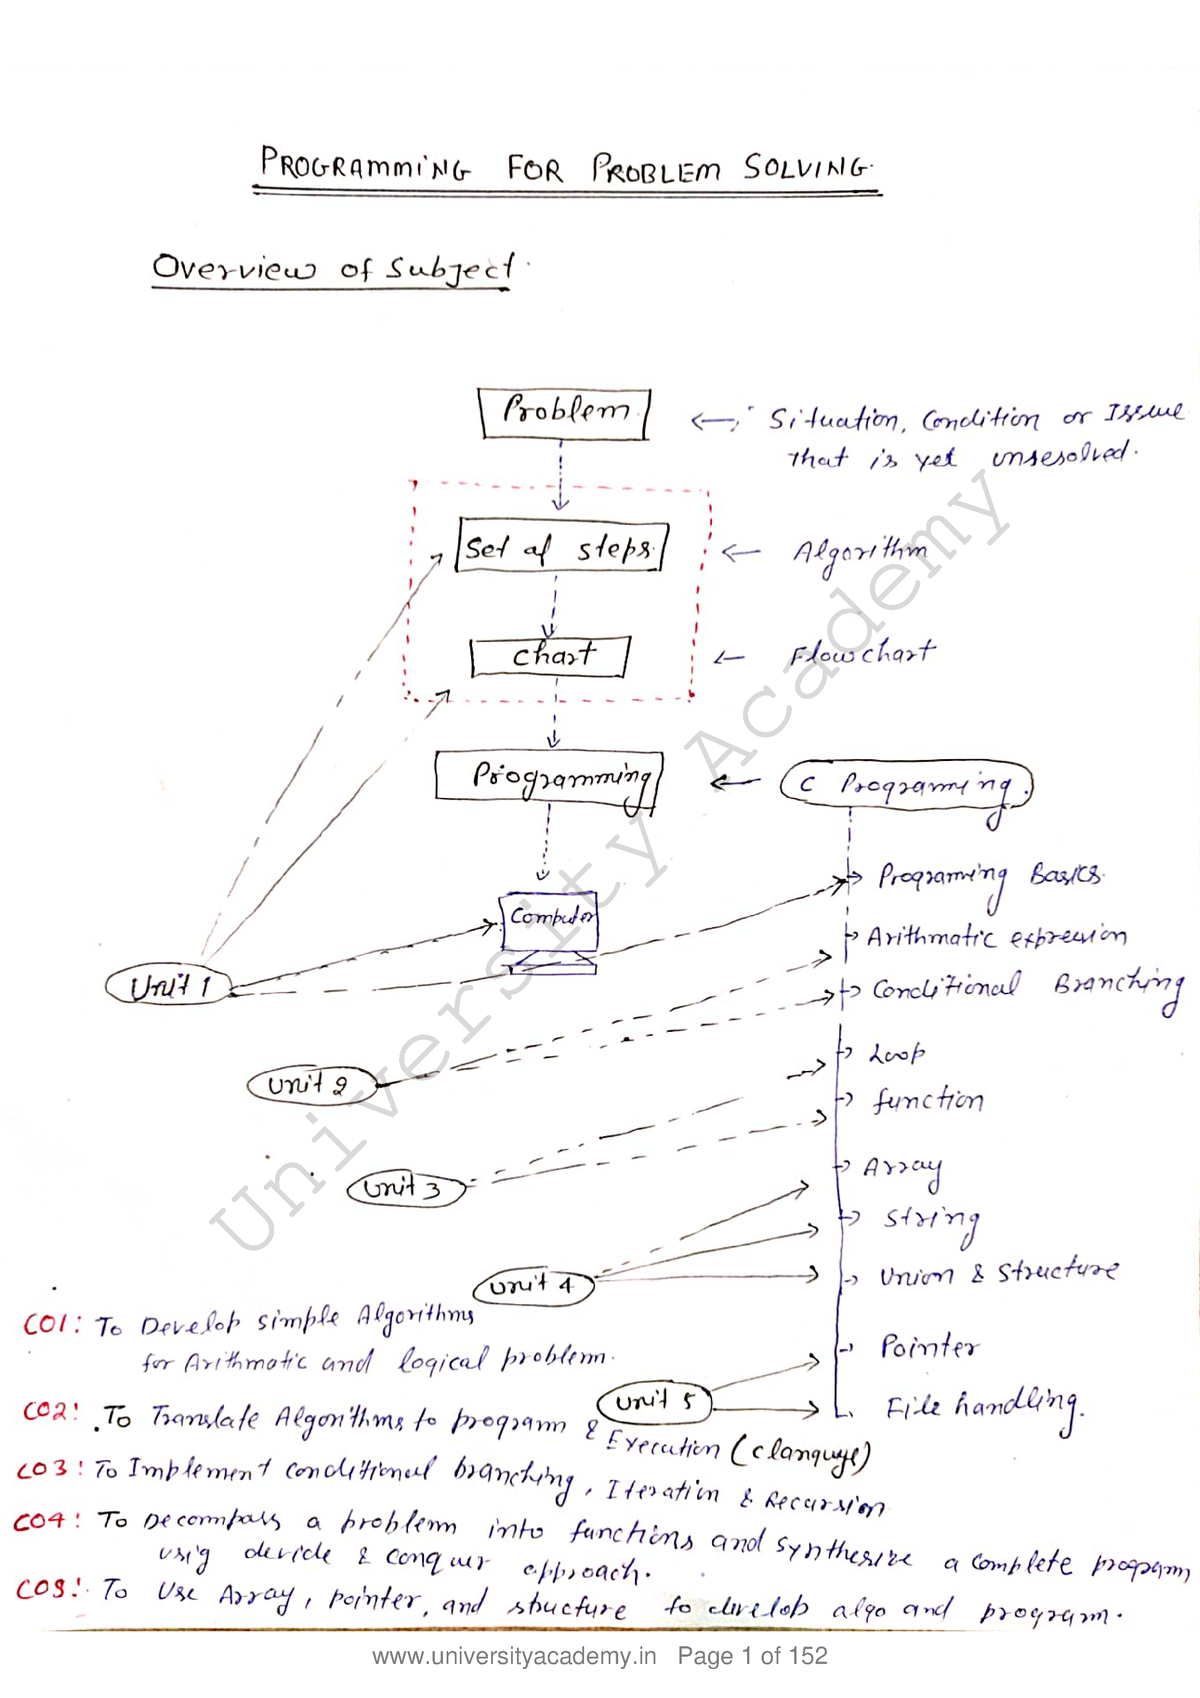 PROGRAMMiNG FOR PROBLEM SOLVING.
Overview of Subject.
Problem
Situation, Condition or Issue
that is yet unresolved.
Set of steps.
Algorithm
Chart
Flowchart
Programming
C Programing.
Programing Basics.
Computer
Arithmatic expression
Unit 1
Conditional Branching
Loop
Unit 2
function
Array
Unit 3
String
Union & Structure
Unit 4
CO1: To Develop simple Algorithms
for Arithmatic and logical problem.
Pointer
Unit 5
File handling.
CO2: To Translate Algorithms to program & Execution (C language)
CO3: To Implement conditional branching, Iteration & Recursion
CO4: To Decompass a problem into functions and synthesize a complete program
using devide & conquer approach.
CO5: To Use Array, pointer, and structure to develop algo and program.
University Academy
www.universityacademy.in Page 1 of 152